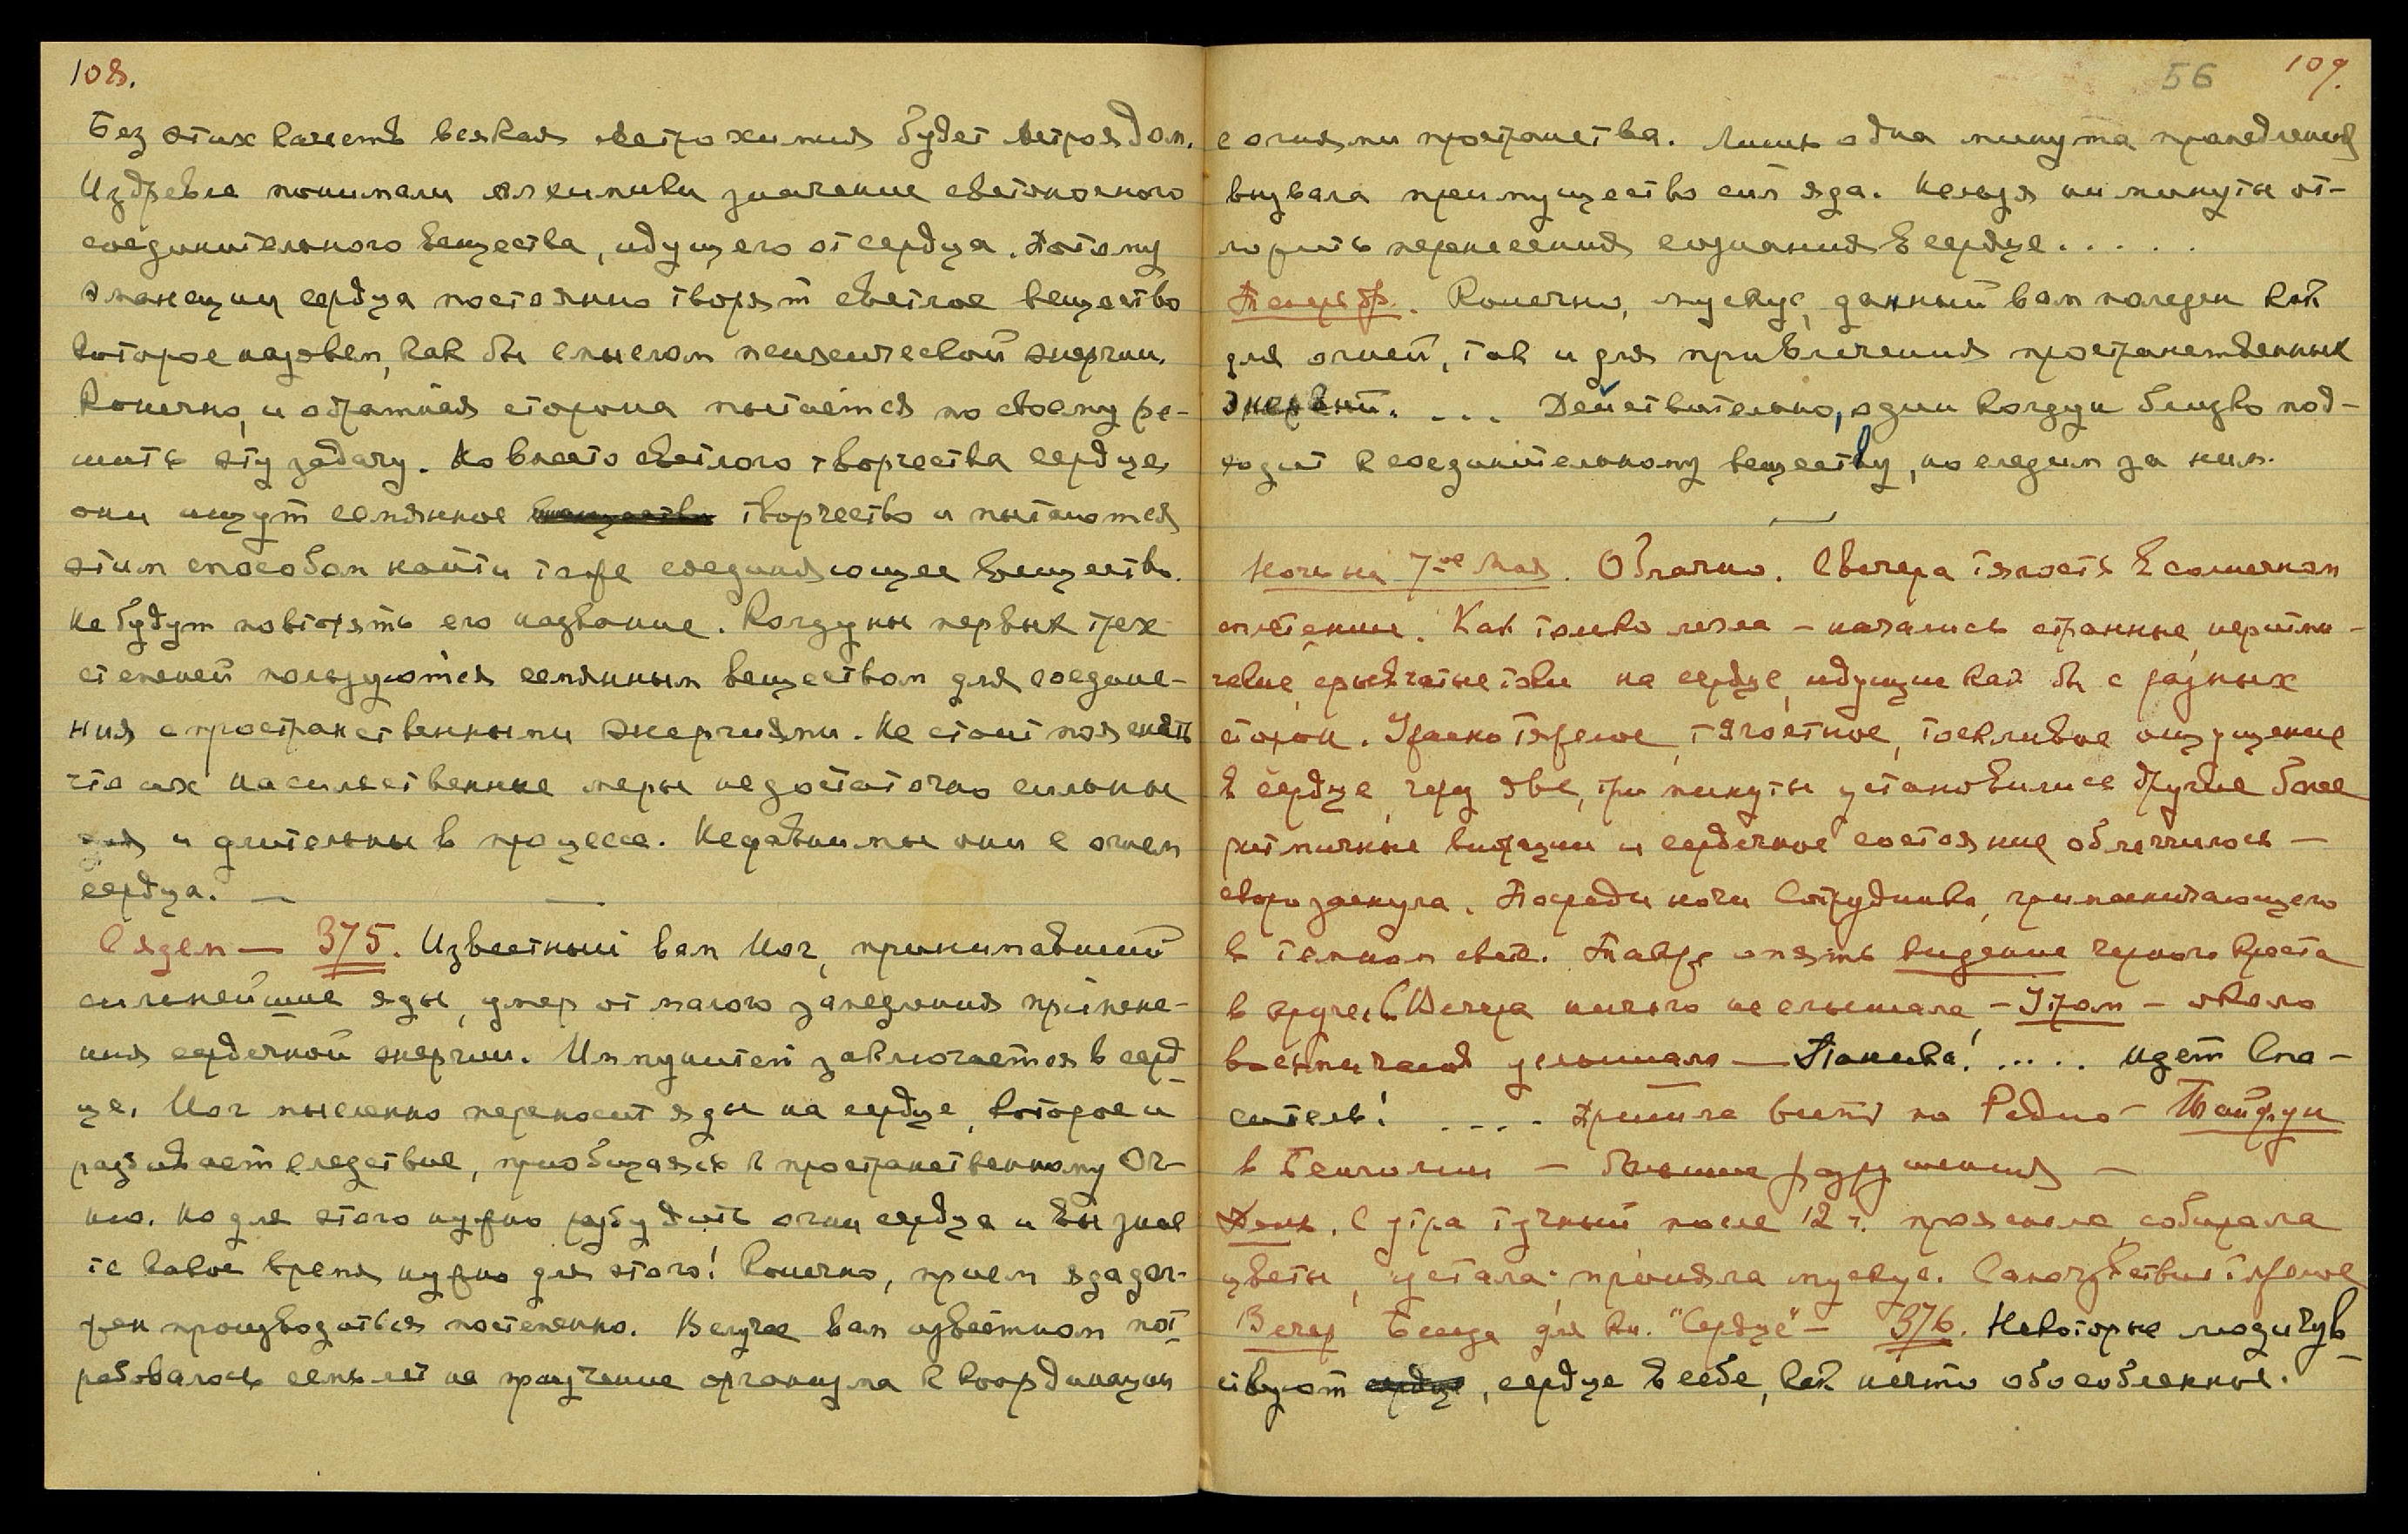 108.
Без этих качеств всякая астрохимия будет астроядом.
Издревле понимали алхимики значение светоносного
соединительного вещества, идущего от сердца. Потому
эманации сердца постоянно творят светлое вещество
которое назовем, как бы смыслом психической энергии.
Конечно, и обратная сторона пытается по своему ре-
шить эту задачу. Но вместо светлого творчества сердца,
они ищут семянное творчество и пытаются
этим способом найти тоже соединяющее вещество.
Не будут повторять его название. Колдуны первых трех
степеней пользуются семянным веществом для соедине-
ния с пространственными энергиями. Не стоит пояснять
что их насильственные меры недостаточно сильны
и длительны в процессе. Несравнимы они с огнем
сердца. —
Сядем — 375. Известный вам Йог, принимавший
сильнейшие яды, умер от малого замедления примене-
ния сердечной энергии. Иммунитет заключается в серд-
це. Йог мысленно переносит яды на сердце, которое и
разбивает следствие, приобщаясь к пространственному Ог-
ню. Но для этого нужно разбудить огни сердца и вы знае
те какое время нужно для этого! Конечно, прием яда дол-
жен производиться постепенно. В случае вам известном пот-
ребовалось семь лет на приучение организма к координации
56 109.
с огнями пространства. Лишь одна минута промедления
вызвала преимущество сил яда. Нельзя ни минуты от-
ложить перенесения сознания в сердце. . . . .
Конечно, мускус, данный вам полезен как
для огней, так и для привлечения пространственных
энергий. . . . Действительно, один колдун близко под-
ходит к соединительному веществу, но следим за ним.
—
Ночь на 7-ое Мая. Облачно. С вечера тягость в солнечном
сплетении. Как только легла — начались странные, неритми-
чные, отрывчатые токи на сердце, идущие как бы с разных
сторон. Ужасно тяжелое, тягостное, тоскливое ощущение
в сердце, через две, три минуты установились другие более
ритмичные вибрации и сердечное состояние облегчилось —
скоро заснула. Посреди ночи Сотрудника, гримасничающего
в темном свете. Также опять видение черного креста
в круге. С Вечера ничего не слышала — Утром — около
восьми часов услышала — Паника! . . . . Идет Спа-
ситель! . . . . Пришла весть по Радио — Тайфун
в Бенгалии — большие разрушения —
День. С утра тучный после 12 ч. прояснело, собирала
цветы, устала. приняла мускус. Самочувствие тяжелое
Вечер Беседа для кн. "Сердце" — 376. Некоторые люди чув-
ствуют , сердце в себе, как нечто обособленное.